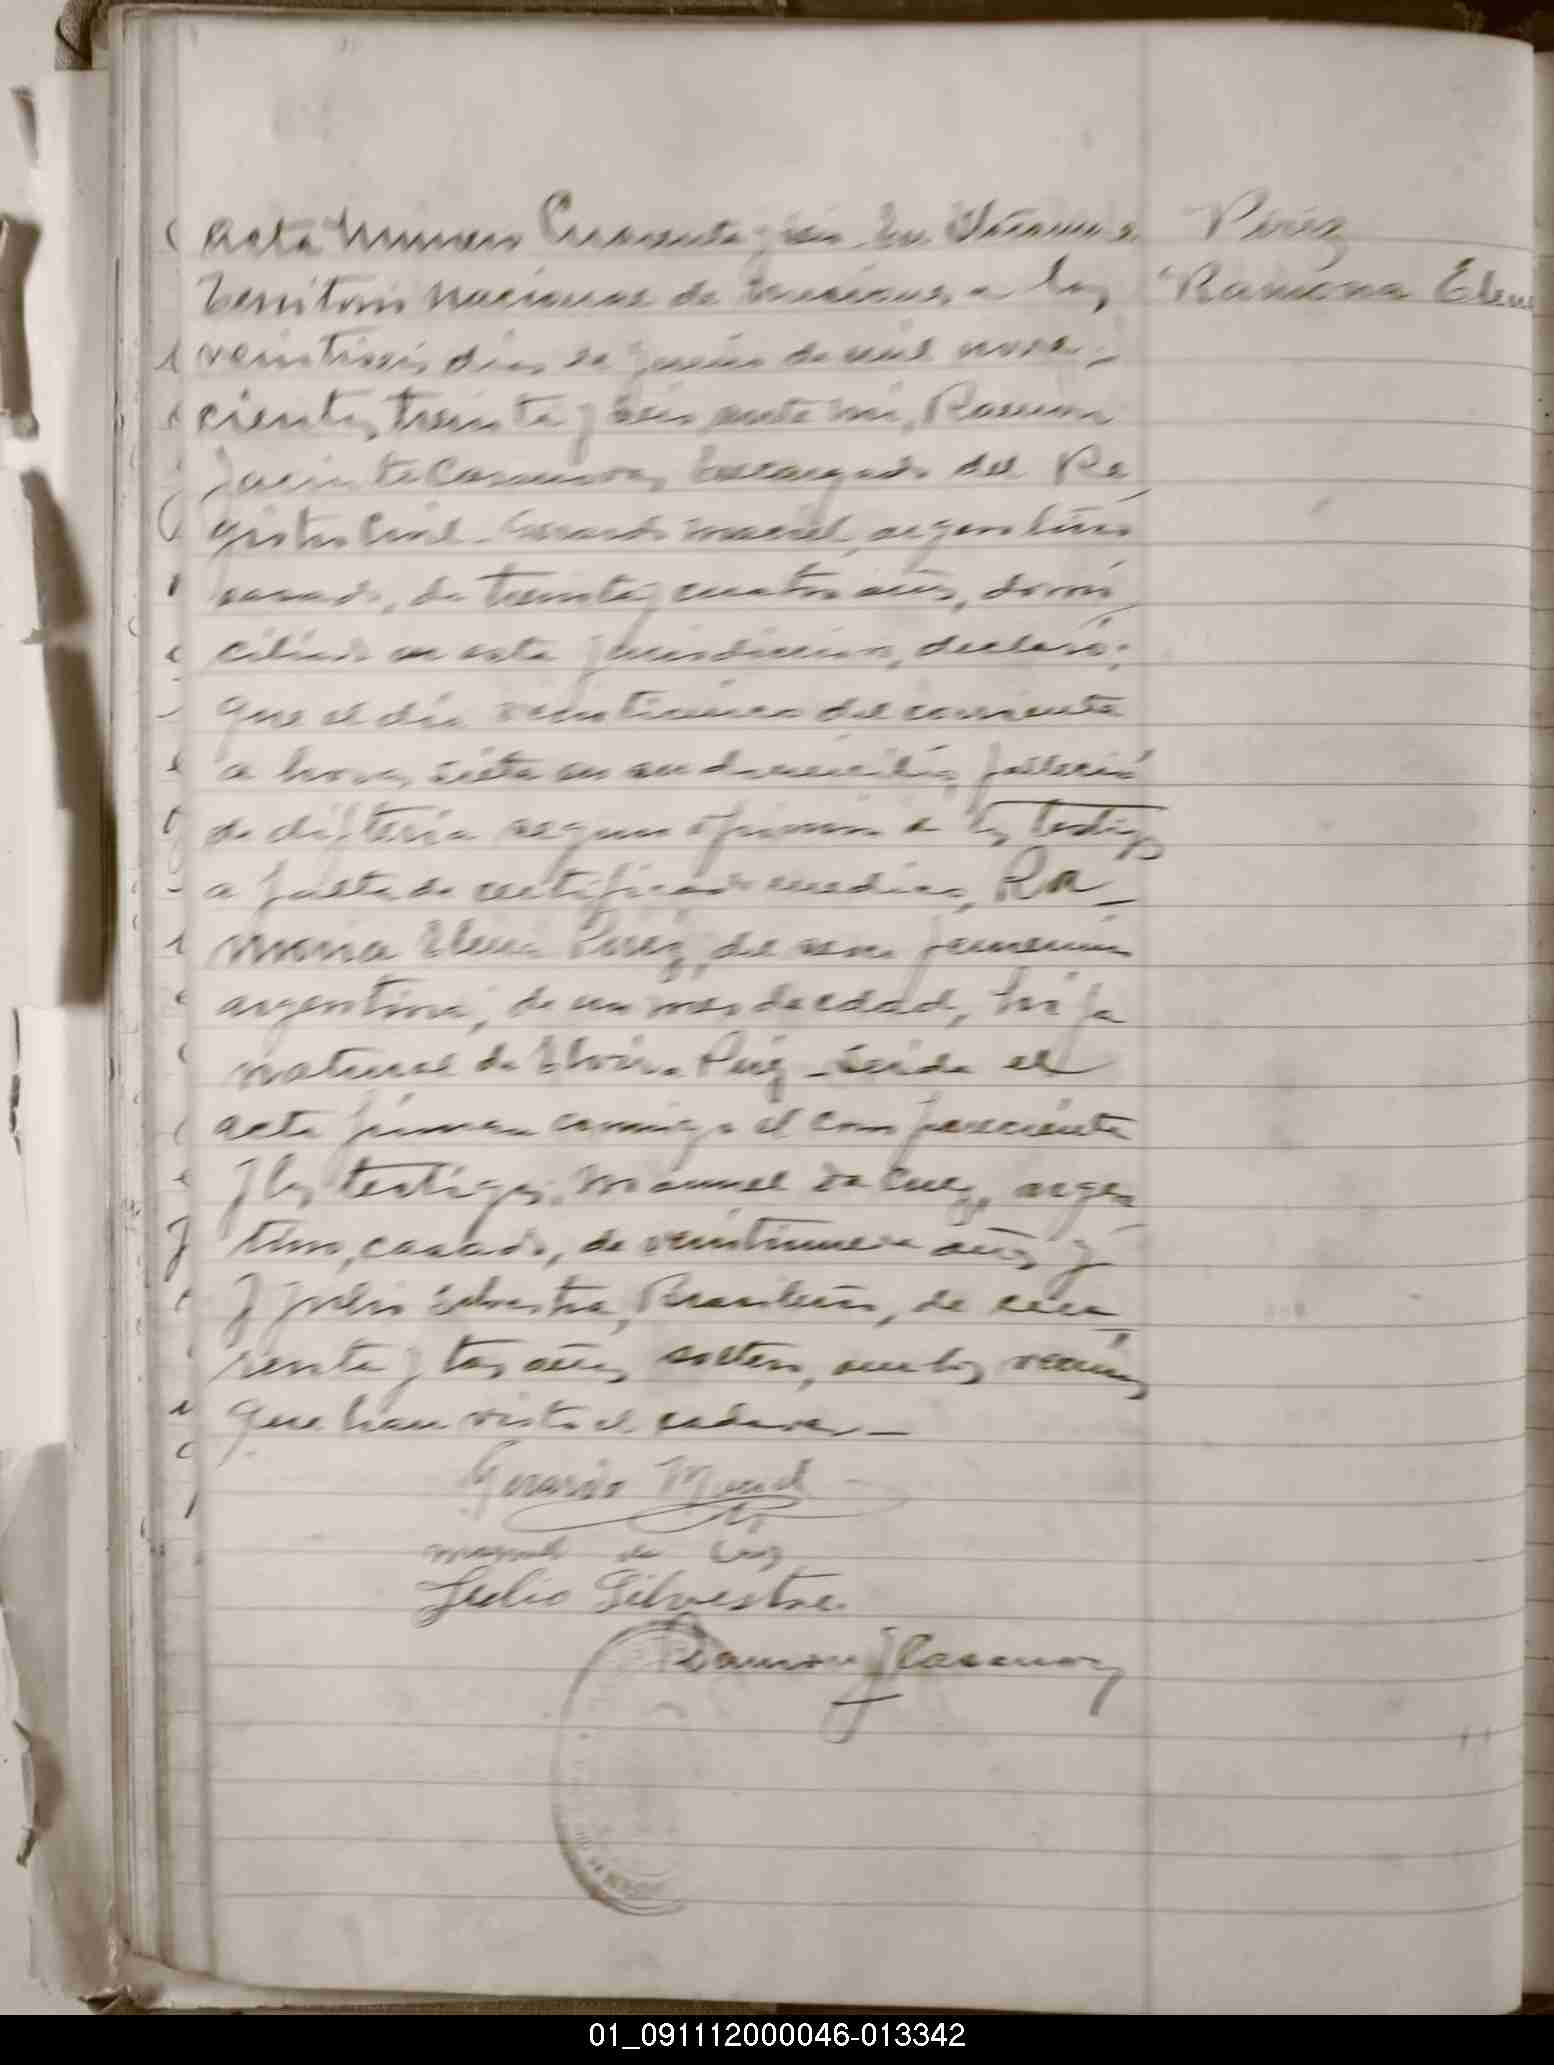 Acta Número Cuarenta y seis En
Territorio Nacional de Misiones, a los
veintiseis dias de Junio de mil nove-
cientos treinta y seis ante mi, Ramon
Jacinto Casanova, Encargado del Re
gistro Civil - Gerardo Maciel, argentino
casado, de treinta y cuatro años, domi
ciliado en esta jurisdiccion, declaró:
que el dia veinticinco del corriente
a horas siete en su domicilio, falleció
de difteria segun opinion de los testigos
a falta de certificado medico, Ra-
mona Elena Perez, del sexo femenino
argentina, de un mes de edad, hija
natural de Elvira Perez - Leida el
acta firman conmigo el compareciente
y los testigos, Manuel da Cruz, argen
tino, casado, de veintinueve años y
y Julio Silvestre, Brasileño, de cua
renta y tres años, soltero, ambos vecinos
que han visto el cadaver -
Gerardo Maciel
Manuel da Cruz
Julio Silvestre
Ramon J Casanova
Pérez
Ramona Elena
01_091112000046-013342